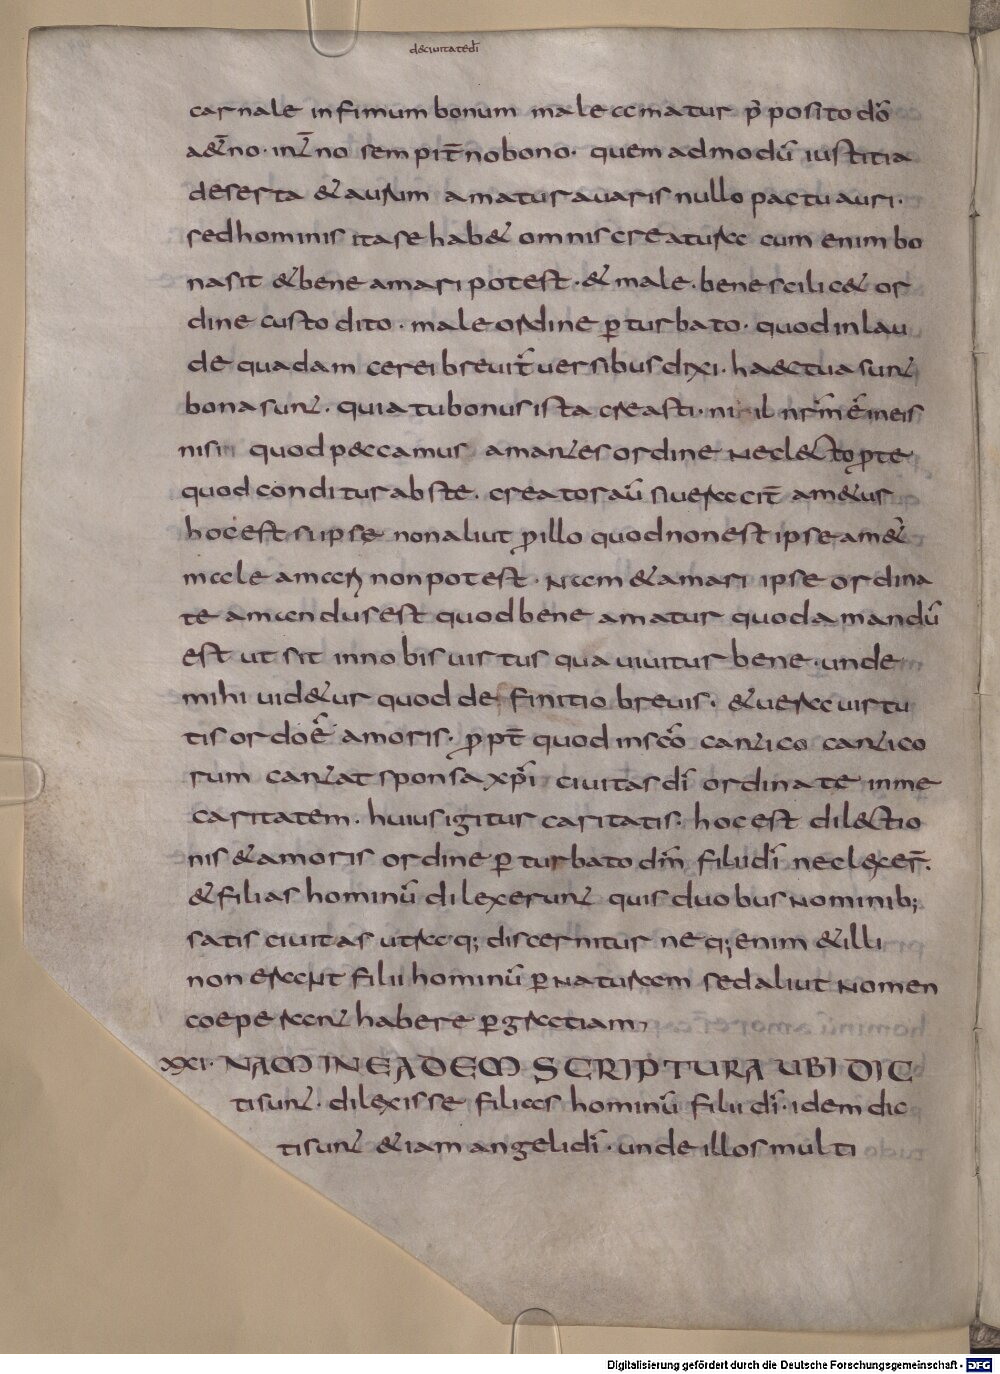 deciuitatedī
carnale infimum bonum male amatur p̄posito dō
aet̄no. int̄no sempit̄no bono. quemadmodū iustitia
deserta & aurum amatur auaris nullo pactu auri.
sed hominis ita se hab& omnis creatura cum enim bo
na sit & bene amari potest. & male. bene scilic& or
dine custodito. male ordine p̄turbato. quod in lau
de quadam cerei breuit̄ uersibus dixi. haec tua sunt
bona sunt. quia tu bonus ista creasti. nihil nr̄m ē in eis
nisi quod peccamus amantes ordine neclecto pro te
quod conditur abs te. creator aū si ueraciт̄ am&ur
hoc est si ipsę non aliut pro illo quod non est ipse am&ur
male amari non potest. nam & amari ipse ordina
te amandus est quod bene amatur quod amandū
est ut sit in nobis uirtus qua uiuitur bene. unde
mihi uid&ur quod definitio breuis. & uera uirtu
tis ordo ē amoris. propt̄ quod in scō cantico cantico
rum cantat sponsa xp̄i ciuitas dī ordinate in me
caritatem. huius igitur caritatis. hoc est dilectio
nis & amoris ordine p̄turbato dm̄ filii dī neclexer̄.
& filias hominū dilexerunt quis duobus nominib;
satis ciuitas utraq; discernitur neq; enim & illi
non erant filii hominū p̄ naturam sed aliut nomen
coeperant habere p̄ gratiam,
XXI. NAM IN EADEM SCRIPTURA UBI DIC
ti sunt. dilexisse filias hominū filii dī. idem dic
ti sunt &iam angeli dī. unde illos multi
Digitalisierung gefördert durch die Deutsche Forschungsgemeinschaft - DFG